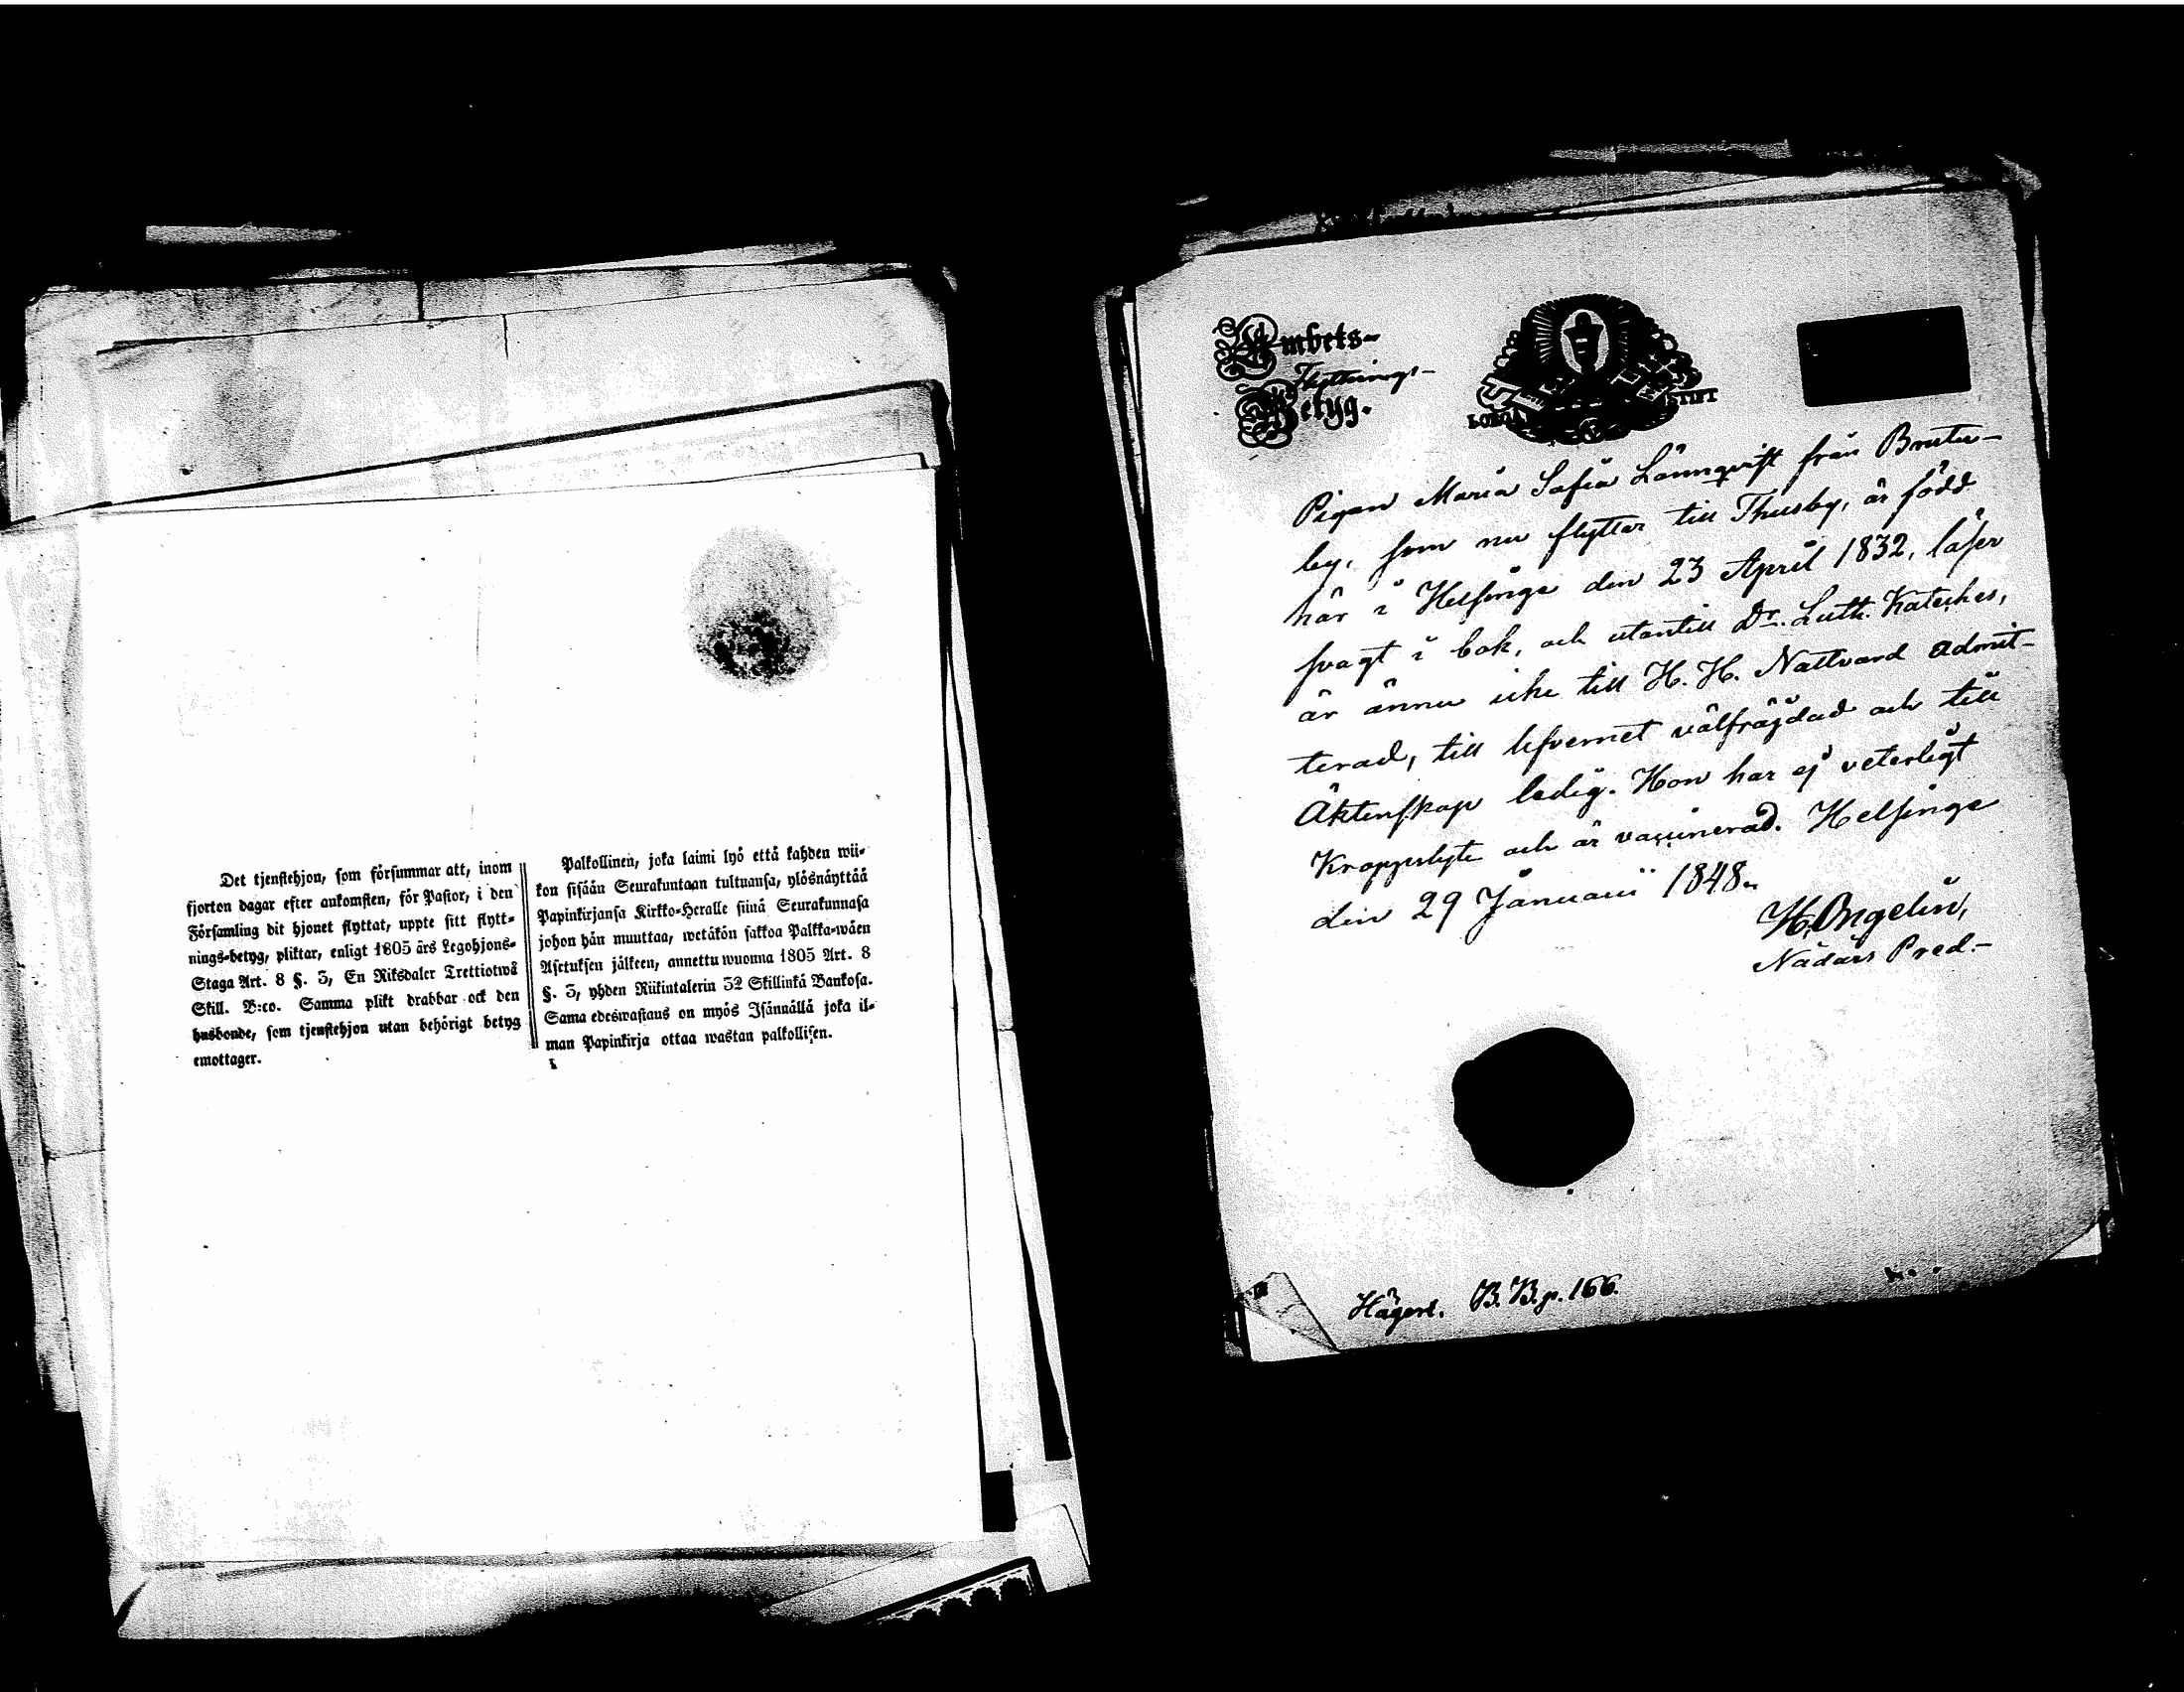 Det tjenstehjon, som försummar att, inom
fjorton dagar efter ankomsten, för Pastor, i den
Församling dit hjonet flyttat, uppte sitt flytt-
nings-betyg, pliktar, enligt 1805 års Legohjons-
Staga Art. 8 §. 3, En Riksdaler Trettiotwå
Skill. B:co. Samma plikt drabbar ock den
husbonde, som tjenstehjon utan behörigt betyg
emottager.
Palkollinen, joka laimi lyö että kahden wii-
kon sisään Seurakuntaan tultuansa, ylösnäyttää
Papinkirjansa Kirkko-Heralle siinä Seurakunnasa
johon hän muuttaa, wetäkön sakkoa Palkka-wäen
Asetuksen jälkeen, annettu wuonna 1805 Art. 8
§. 3, yhden Riikintalerin 32 Skillinkä Bankosa.
Sama edeswastaus on myös Isännällä joka il-
man Papinkirja ottaa wastan palkollisen.
Embets-
Flyttnings-
Betyg.
STIFT
Pigan Maria Sofia Lönnqvist från
by, som nu flyttar till Thusby, är född
här i Helsinge den 23 April 1832, läser
svagt i bok, och utantill Dr. Luth. Kateches,
är ännu icke till H. H. Nattvard admit-
terad, till lefvernet välfräjdad och till
Äktenskap ledig. Hon har ej veterligt
Kroppslyte och är vaccinerad. Helsinge
den 29 Januarii 1848.
Nådårs Pred.-
B. B. p. 166.